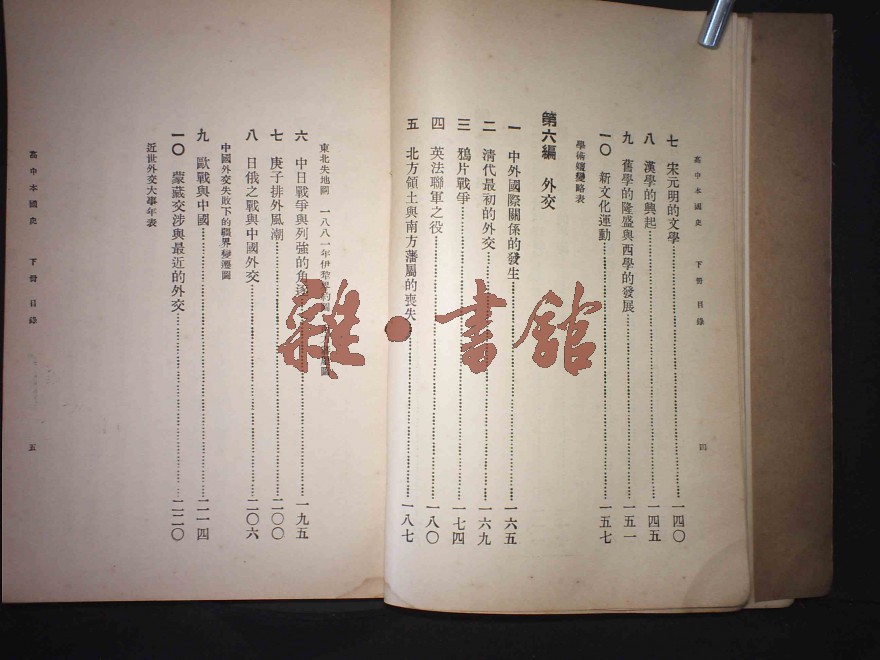 高中本國史　下冊　目錄　四
七　宋元明的文學……一四〇
八　漢學的興起……一四五
九　舊學的隆盛與西學的發展……一五一
一〇　新文化運動……一五七
學術嬗變略表
第六編　外交
一　中外國際關係的發生……一六五
二　清代最初的外交……一六九
三　鴉片戰爭……一七四
四　英法聯軍之役……一八〇
五　北方領土與南方藩屬的喪失……一八七
東北失地圖　一八八一年伊犂界約圖
六　中日戰爭與列強的角逐……一九五
七　庚子排外風潮……二〇〇
八　日俄之戰與中國外交……二〇六
中國外交失敗下的疆界變遷圖
九　歐戰與中國……二一四
一〇　蒙藏交涉與最近的外交……二二〇
近世外交大事年表
高中本國史　下冊　目錄　五
雜·書館